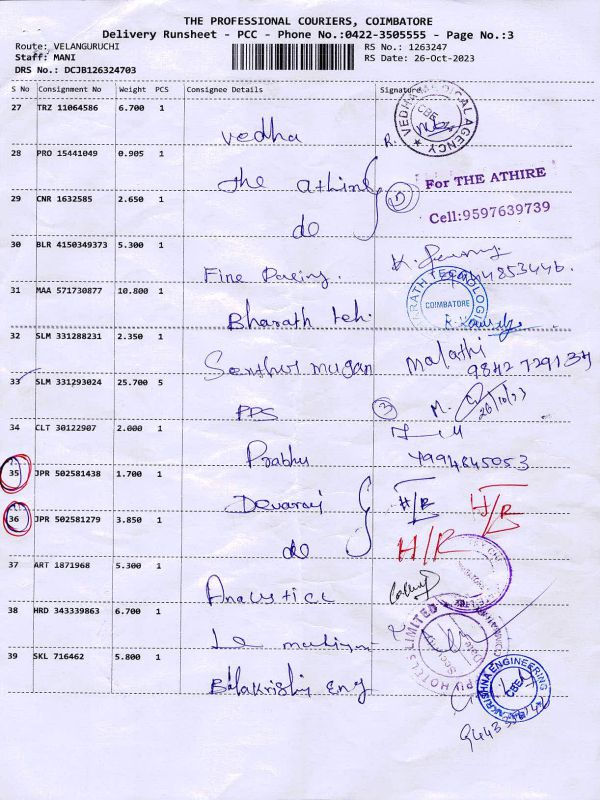 THE PROFESSIONAL COURIERS, COIMBATORE
Delivery Runsheet - PCC - Phone No.:0422-3505555 - Page No.:3
Route: VELANGURUCHI RS No.: 1263247
Staff: MANI RS Date: 26-Oct-2023
DRS No.: DCJB126324703
S No Consignment No Weight PCS Consignee Details Signature
27 TRZ 11064586 6.700 1
vedha R.
VEDHA MEDICAL AGENCY
CBE
28 PRO 15441049 0.905 1
the
For THE ATHIRE
29 CNR 1632585 2.650 1
Cell:9597639739
do
30 BLR 4150349373 5.300 1
Fine K.
31 MAA 571730877 10.800 1
COIMBATORE
Bharath teh.
32 SLM 331288231 2.350 1
Senthur mugan Malathi
9842729134
33 SLM 331293024 25.700 5
PPS 3 M. 26/10/23
34 CLT 30122907 2.000 1
Prabhu 9994845053
35 JPR 502581438 1.700 1
Devaraj H/R H/R
36 JPR 502581279 3.850 1
do H/R
37 ART 1871968 5.300 1
38 HRD 343339863 6.700 1
Le
HOTELS LIMITED
39 SKL 716462 5.800 1
Balakrishi eng
KRISHNA ENGINEERING
CBE